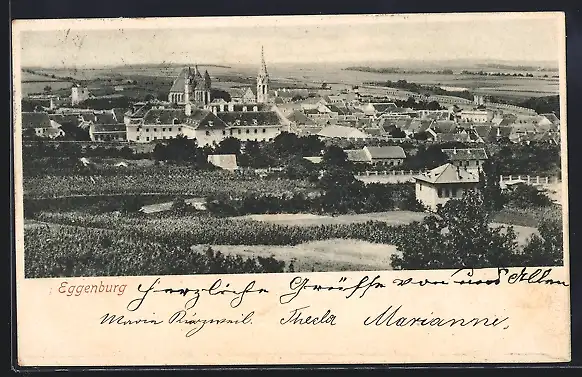 Eggenburg Herzliche Grüße von uns Allen
Maria Thecla Marianne.